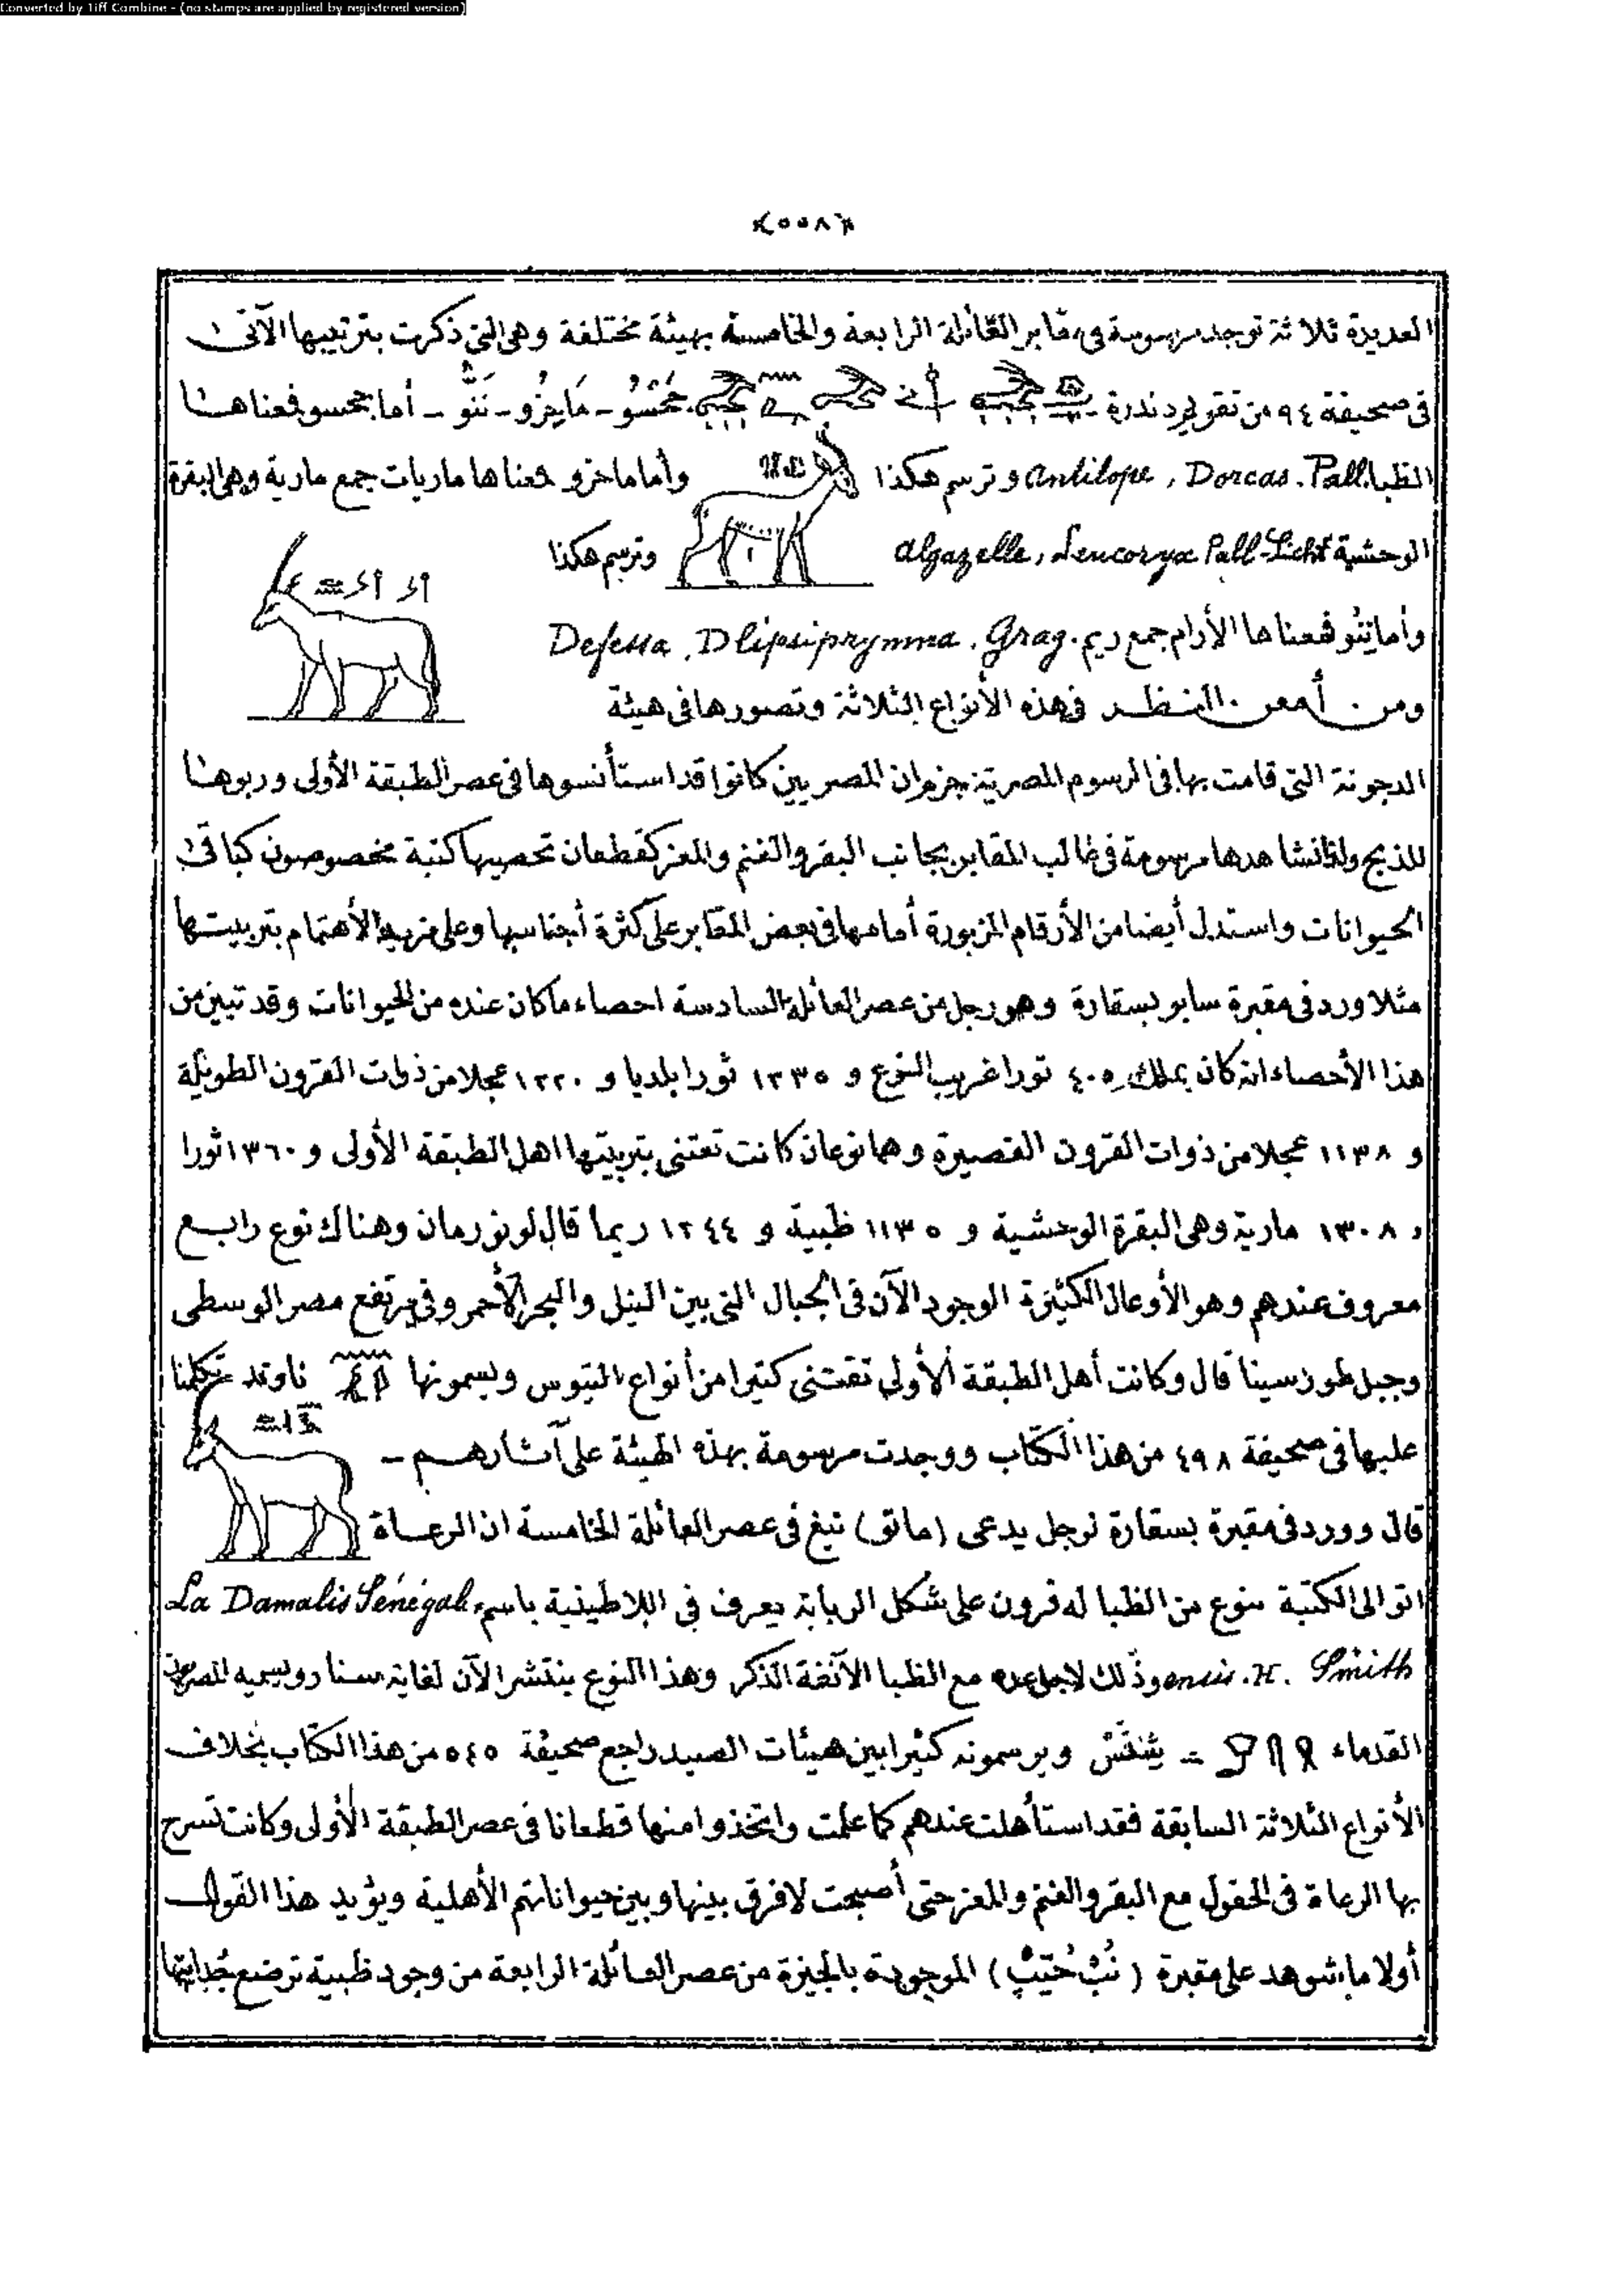 Converted by Tiff Combine - (no stamps are applied by registered version)
(٥٥٨)
العديدة ثلاثة توجد مرسومة فى مقابر العائلة الرابعة والخامسة بهيئة مختلفة وهى التى ذكرت بترتيبها الآتى
فى صحيفة ٩٤ من تقويم دندرة - أما جحسو فمعناها
الظبا Antilope, Dorcas. Pall. وترسم هكذا وأما ماخزو فمعناها ماريات جمع مارية وهى البقرة
الوحشية Algazelle, Leucoryx Pall-Licht وترسم هكذا
وأما ننو فمعناها الأرام جمع ريم Defessa, D lipsiprymma. Grag.
ومن أمعن النظر فى هذه الأنواع الثلاثة وتصورها فى هيئة
الدجونة التى قامت بها فى الرسوم المصرية جزم ان المصريين كانوا قد استأنسوها فى عصر الطبقة الأولى وربوها
للذبح ولذا نشاهدها مرسومة فى غالب المقابر بجانب البقر والغنم والمعز كقطعان تحصيها كتبة مخصوصون كباقى
الحيوانات واستدل أيضا من الأرقام المزبورة أمامها فى بعض المقابر على كثرة أجناسها وعلى مزيد الأهتمام بتربيتها
مثلا ورد فى مقبرة سابو بسقارة وهو رجل من عصر العائلة السادسة احصاء ما كان عنده من الحيوانات وقد تبين من
هذا الأحصاء انه كان يملك ٤٠٥ ثورا غريب النوع و ١٢٣٥ ثورا بلديا و ١٢٢٠ عجلا من ذوات القرون الطويلة
و ١١٣٨ عجلا من ذوات القرون القصيرة وهما نوعان كانت تعتنى بتربيتها اهل الطبقة الأولى و ١٣٦٠ ثورا
و ١٣٠٨ مارية وهى البقرة الوحشية و ١١٣٥ ظبية و ١٢٤٤ ريما قال لونورمان وهناك نوع رابع
معروف عندهم وهو الأوعال الكثيرة الوجود الآن فى الجبال التى بين النيل والبحر الأحمر وفى مرتفع مصر الوسطى
وجبل طور سينا قال وكانت أهل الطبقة الأولى تقتنى كثيرا من أنواع التيوس ويسمونها ناو وقد تكلمنا
عليها فى صحيفة ٤٩٨ من هذا الكتاب ووجدت مرسومة بهذه الهيئة على آثارهم -
قال وورد فى مقبرة بسقارة لرجل يدعى (مانق) نبغ فى عصر العائلة الخامسة ان الرعاة
اتوا الى الكتبة بنوع من الظبا له قرون على شكل الربابة يعرف فى اللاطينية باسم La Damalis Sénégal
ensis. H. Smith وذلك لاجل عده مع الظبا الآنفة الذكر وهذا النوع ينتشر الآن لغاية سنار ويسميه المصريون
القدماء = ويرسمونه كثيرا بين هيئات الصيد راجع صحيفة ٥٤٥ من هذا الكتاب بخلاف
الأنواع الثلاثة السابقة فقد استأهلت عندهم كما علمت واتخذوا منها قطعانا فى عصر الطبقة الأولى وكانت تسرح
بها الرعاة فى الحقول مع البقر والغنم والمعز حتى أصبحت لا فرق بينها وبين حيواناتهم الأهلية ويؤيد هذا القول
أولا ما شوهد على مقبرة (نُبْ حُتِبْ) الموجودة بالجيزة من عصر العائلة الرابعة من وجود ظبية ترضع جدايتها